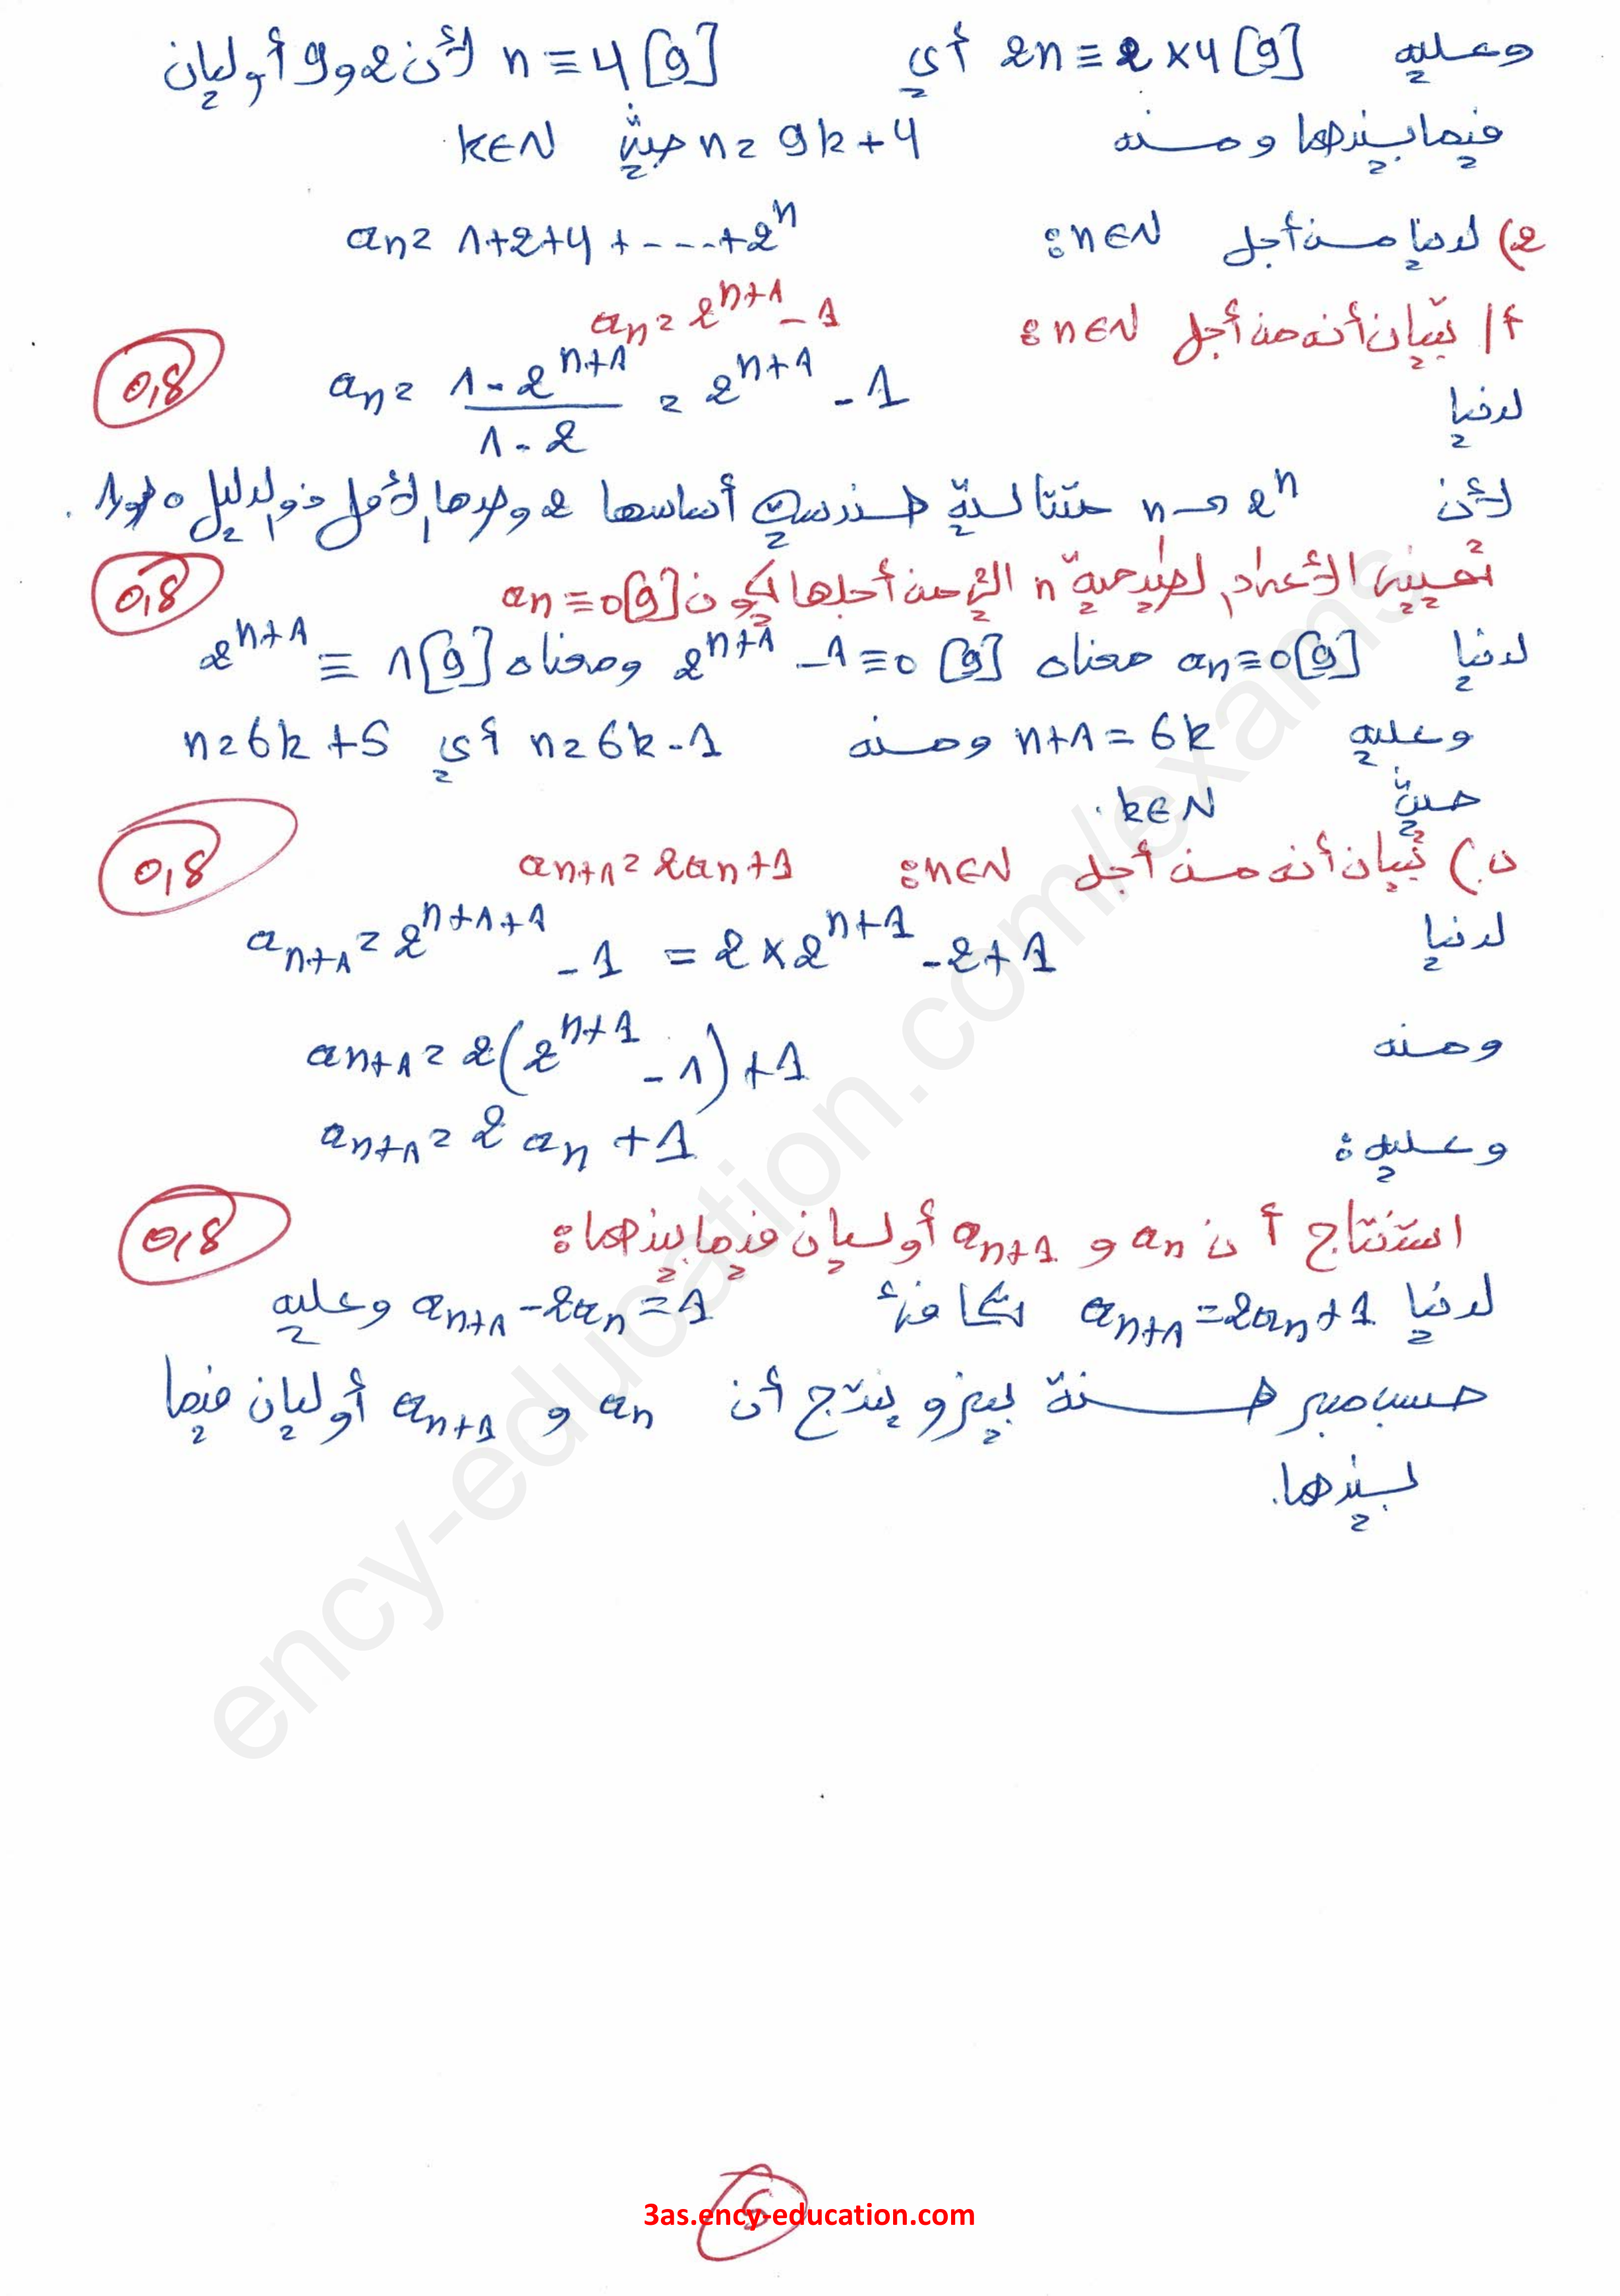 وعليه 2n ≡ 2×4[9] أي n ≡ 4[9] لأن 2 و 9 أوليان
فيما بينهما ومنه n = 9k+4 حيث k∈N.
2) لدينا من أجل n∈N: an = 1+2+4+----+2^n
أ/ تبيان أنه من أجل n∈N: an = 2^{n+1} - 1
0,8
لدينا an = (1-2^{n+1})/(1-2) = 2^{n+1} - 1
لأن n→2^n متتالية هندسية أساسها 2 وحدها الأول ذو الدليل 0 هو 1.
0,8
تعيين الأعداد الطبيعية n التي من أجلها يكون an ≡ 0[9]
لدينا an ≡ 0[9] معناه 2^{n+1} - 1 ≡ 0[9] ومعناه 2^{n+1} ≡ 1[9]
وعليه n+1 = 6k ومنه n = 6k-1 أي n = 6k+5
حيث k∈N.
ب) تبيان أنه من أجل n∈N: a_{n+1} = 2an+1
0,8
لدينا a_{n+1} = 2^{n+1+1} - 1 = 2×2^{n+1} - 2+1
ومنه a_{n+1} = 2(2^{n+1} - 1)+1
وعليه: a_{n+1} = 2 an + 1
استنتاج أن an و a_{n+1} أوليان فيما بينهما:
0,8
لدينا a_{n+1} = 2an+1 تكافئ a_{n+1} - 2an = 1 وعليه
حسب مبرهنة بيزو ينتج أن an و a_{n+1} أوليان فيما
بينهما.
ency-education.com/exams
3as.ency-education.com